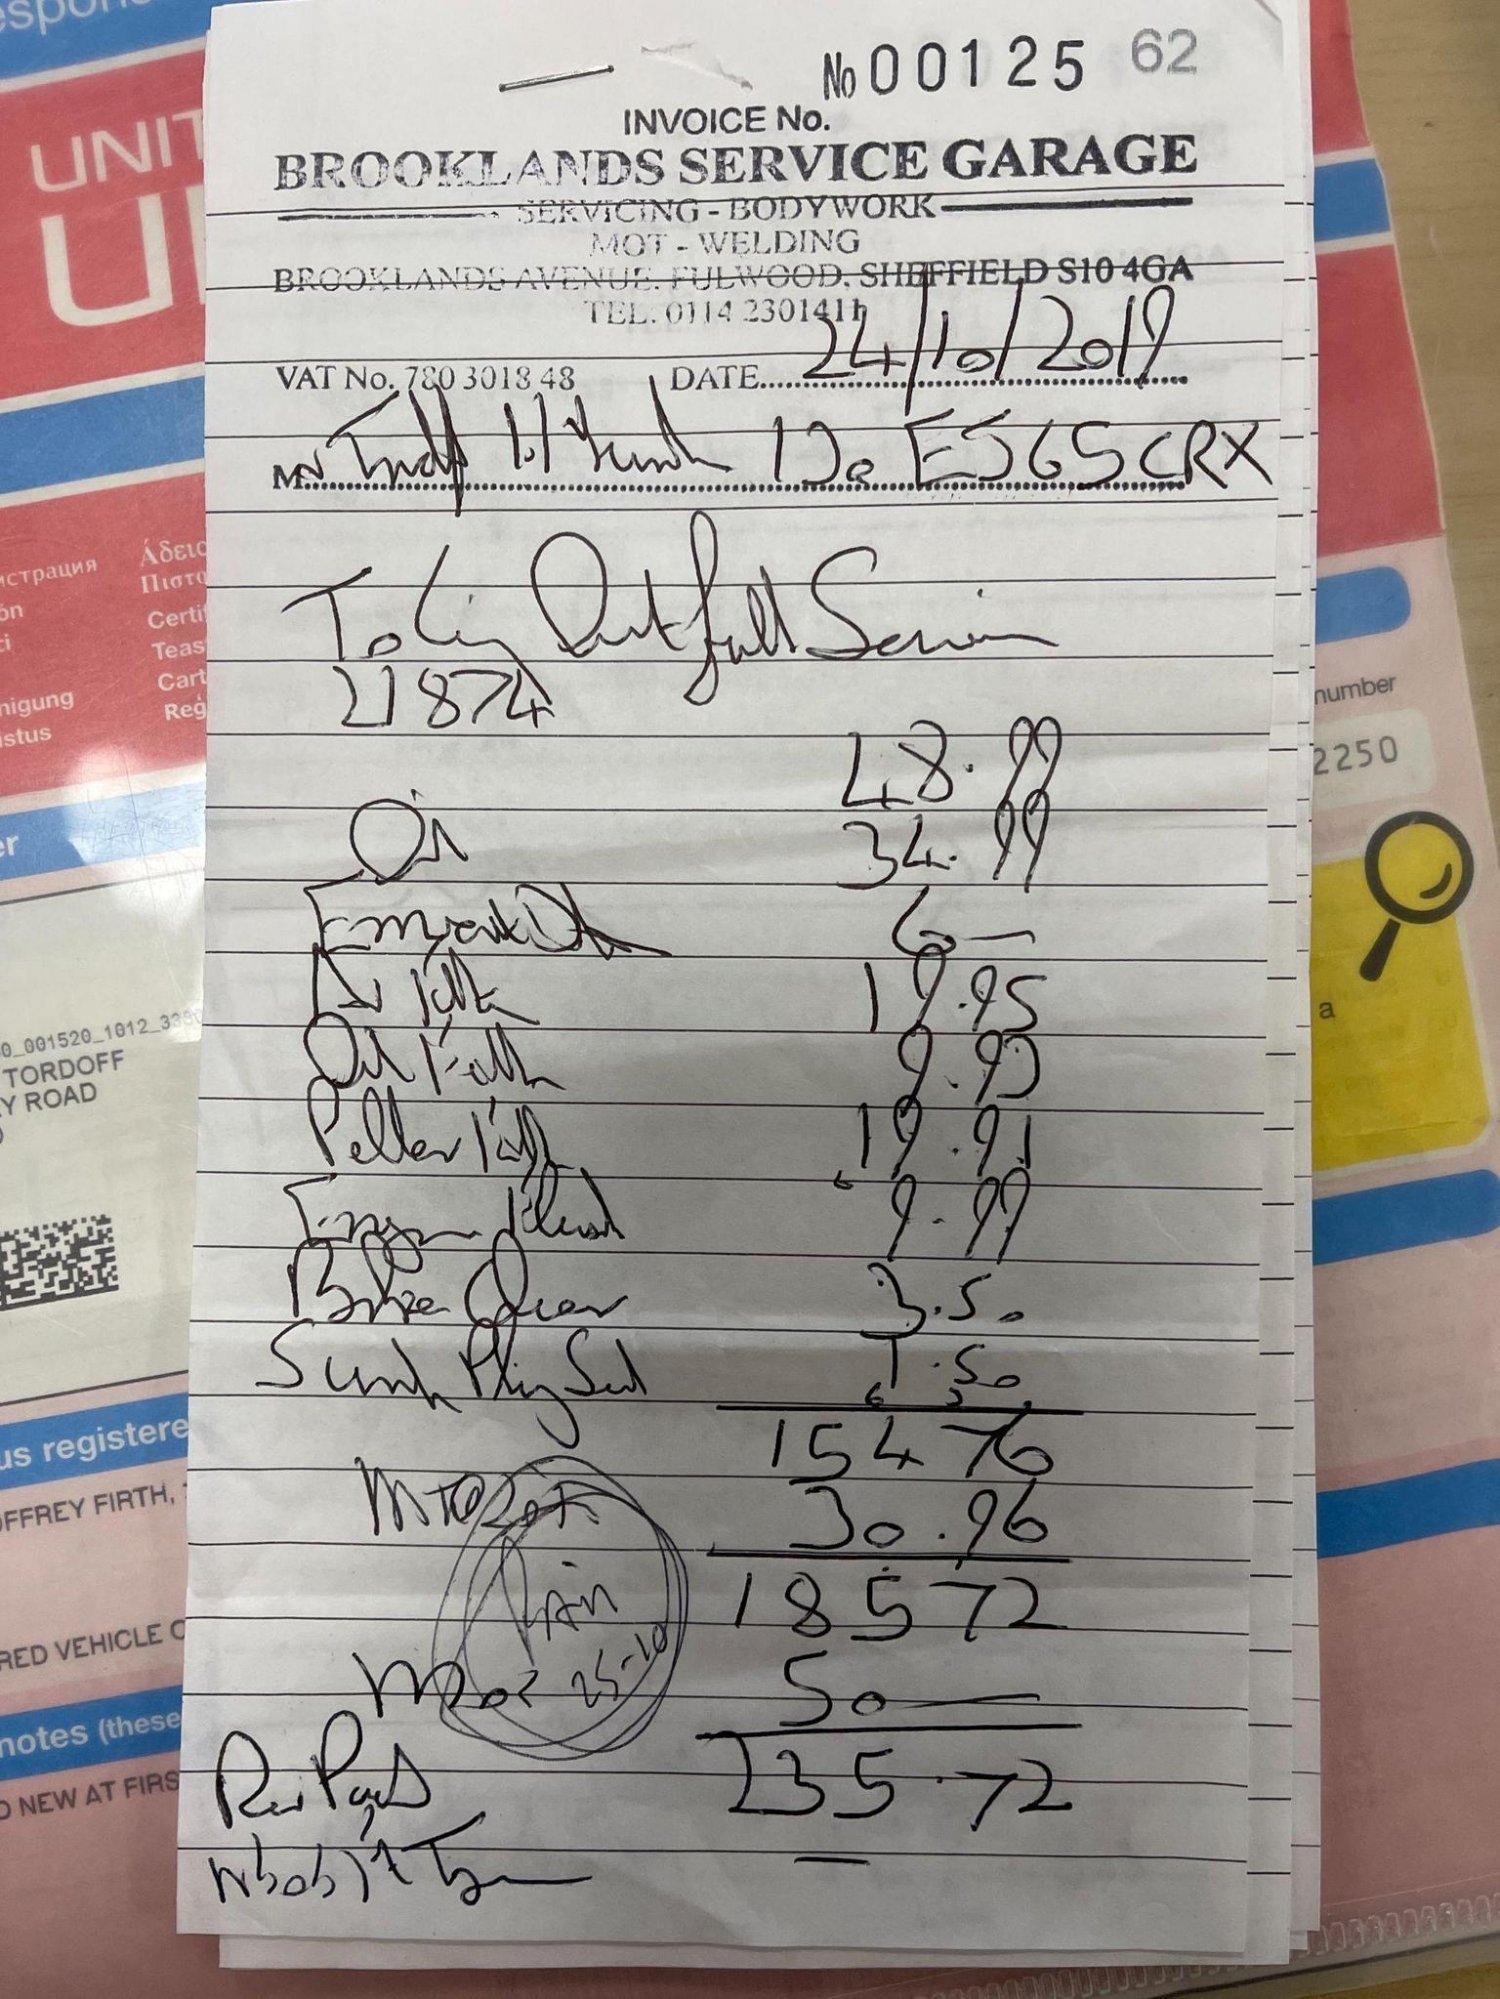 No 00125 62
INVOICE No.
BROOKLANDS SERVICE GARAGE
SERVICING - BODYWORK
MOT - WELDING
BROOKLANDS AVENUE, FULWOOD, SHEFFIELD S10 4GA
TEL. 0114 2301411
VAT No. 780 3018 48 DATE 24/10/2019
M
To Carry Out full Service
21874
48.99
Oil 34.99
6 —
Air Filter 19.95
Oil Filter 9.93
Pollen Filter 19.91
Engine Flush 9.99
Brake Clean 3.50
Sump Plug Seal 1.50
154 76
30.96
185 72
PAID
25-10
MOT 50 —
235.72
—
UNIT
истрация
ón
ci
nigung
istus
Άδειο
Πιστο
Certif
Teas
Cart
Reģ
er
TORDOFF
Y ROAD
us registere
OFFREY FIRTH,
RED VEHICLE
notes (these
NEW AT FIRS
number
2250
a